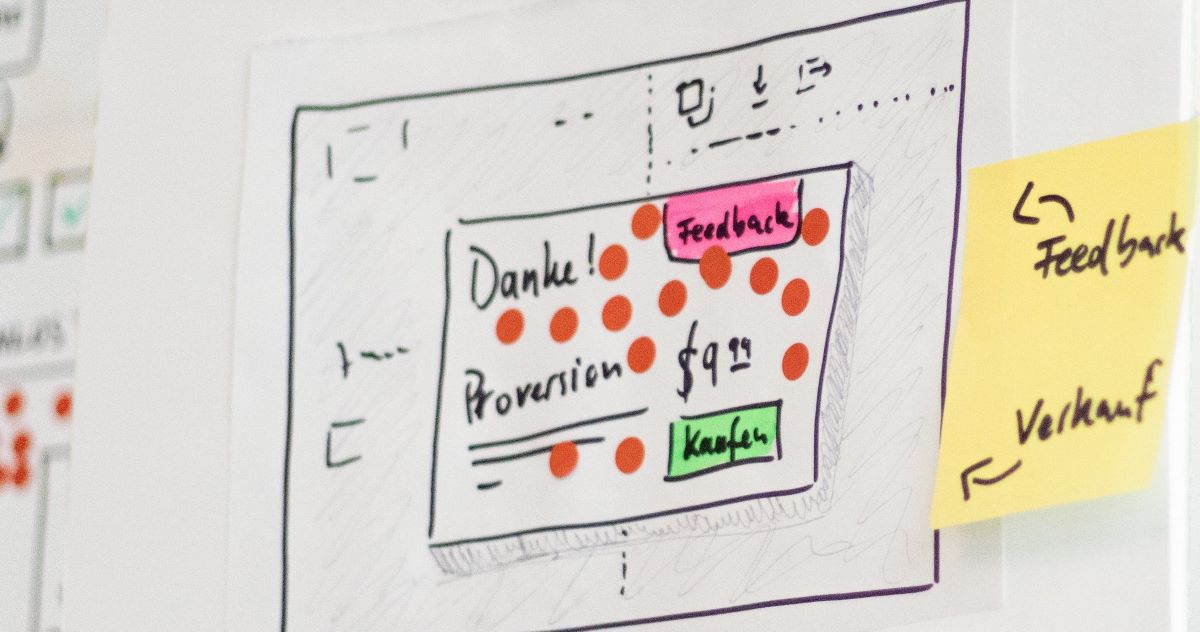 Feedback
Danke!
Proversion
$9.99
Kaufen
Feedback
Verkauf